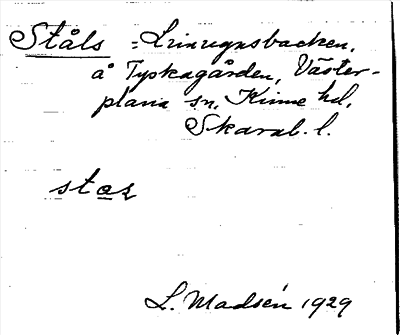 Ståls = Linregnsbacken,
å Tyskagården, Väster-
plana sn, Kinne hd,
Skarab. l.
L. Madsén 1929